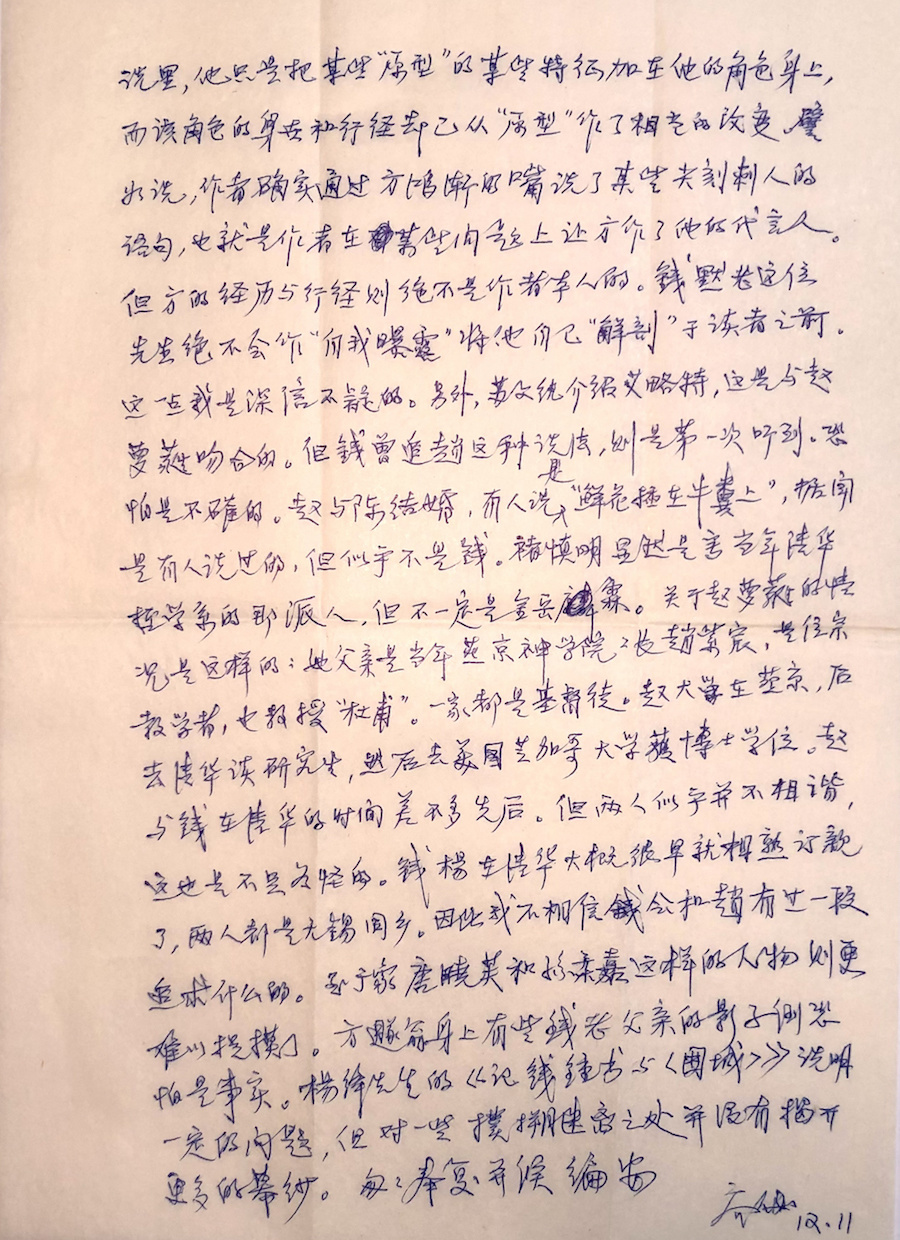 说里,他只是把某些“原型”的某些特征加在他的角色身上,
而该角色的身世和行径却已从“原型”作了相当的改变。譬
如说,作者确实通过方鸿渐的嘴说了某些尖刻刺人的
语句,也就是作者在某些问题上让方作了他的代言人。
但方的经历与行径则绝不是作者本人的。錢默老这位
先生绝不会作“自我曝露”将他自己“解剖”于读者之前。
这一点我是深信不疑的。另外,苏文纨介绍艾略特,这是与赵
萝蕤吻合的。但錢曾追趙这种说法,则是第一次听到。恐
怕是不确的。赵与陈结婚,有人说是“鲜花插在牛糞上”,据闻
是有人说过的,但似乎不是錢。褚慎明显然是害当年清华
哲学系的那派人,但不一定是金岳霖。关于赵萝蕤的情
况是这样的:她父亲是当年燕京神学院之长趙紫宸,是位宗
教学者,也教授“杜甫”。一家都是基督徒。赵大学在燕京,后
去清华读研究生,然后去美国芝加哥大学獲博士学位。赵
与錢在清华的时间差不多先后。但两人似乎并不相谐,
这也是不足为怪的。錢楊在清华大概很早就相熟订親
了,两人都是无锡同乡。因此我不相信錢公和趙有过一段
追求什么的。至于家唐曉芙和孙柔嘉这样的人物则更
难以捉摸了。方遯翁身上有些錢老父亲的影子倒恐
怕是事实。楊绛先生的《记錢鍾书与〈围城〉》说明
一定的问题,但对一些模糊隐密之处并没有揭开
更多的幕纱。匆匆奉复并候 编安
12.11